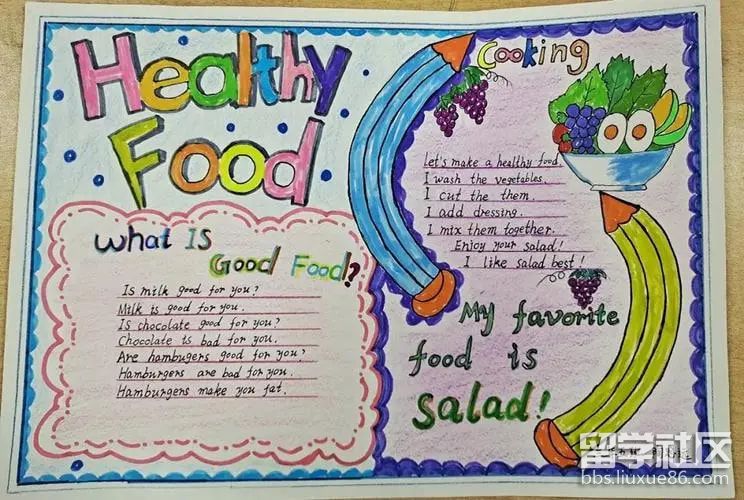 Healthy
Food
What Is
Good Food?
Is milk good for you?
Milk is good for you.
Is chocolate good for you?
Chocolate is bad for you.
Are hambugers good for you?
Hamburgers are bad for you.
Hamburgers make you fat.
Cooking
let's make a healthy food.
I wash the vegetables.
I cut the them.
I add dressing.
I mix them together.
Enjoy your salad!
I like salad best!
My favorite
food is
Salad!
留学社区
bbs.liuxue86.com